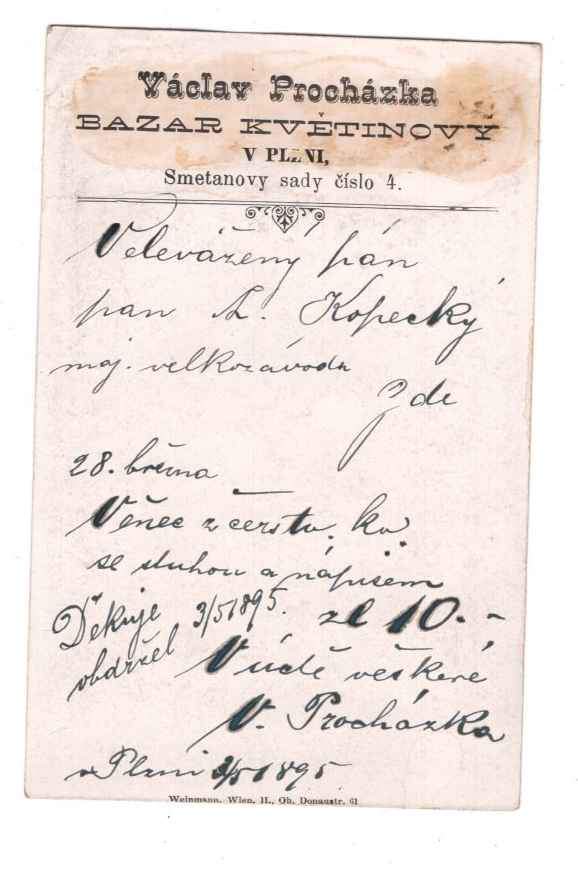 Václav Procházka
BAZAR KVĚTINOVÝ
V PLZNI,
Smetanovy sady číslo 4.
Velevážený pán
pan A. Kopecký
maj. velkozávodu
Zde
28. března
Věnec z čerstv. kv
se stuhou a nápisem
zl 10.-
Děkuje 3/5 1895.
obdržel
V úctě veškeré
V. Procházka
v Plzni 3/5 1895
Weinmann, Wien, II., Ob. Donaustr. 61